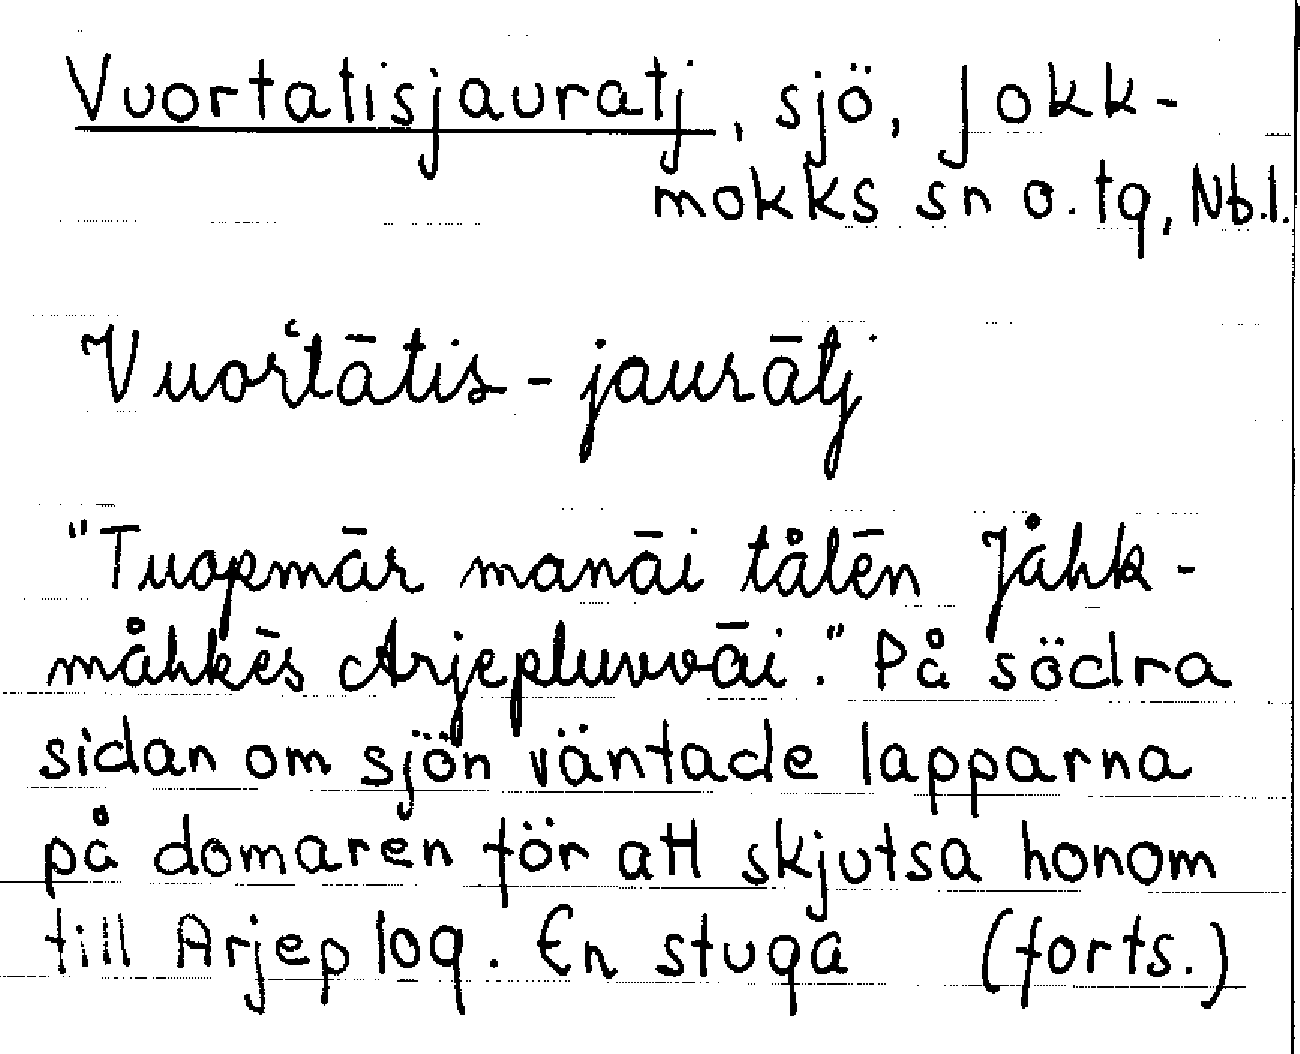 Vuortatisjauratj, sjö, Jokk-
mokks sn o. tg, Nb.l.
Vuorʻtātis-jaurātj
"Tuopmār manāi tålēn Jåhk-
måhkēs Arjepluvvāi." På södra
sidan om sjön väntade lapparna
på domaren för att skjutsa honom
till Arjeplog. En stuga (forts.)